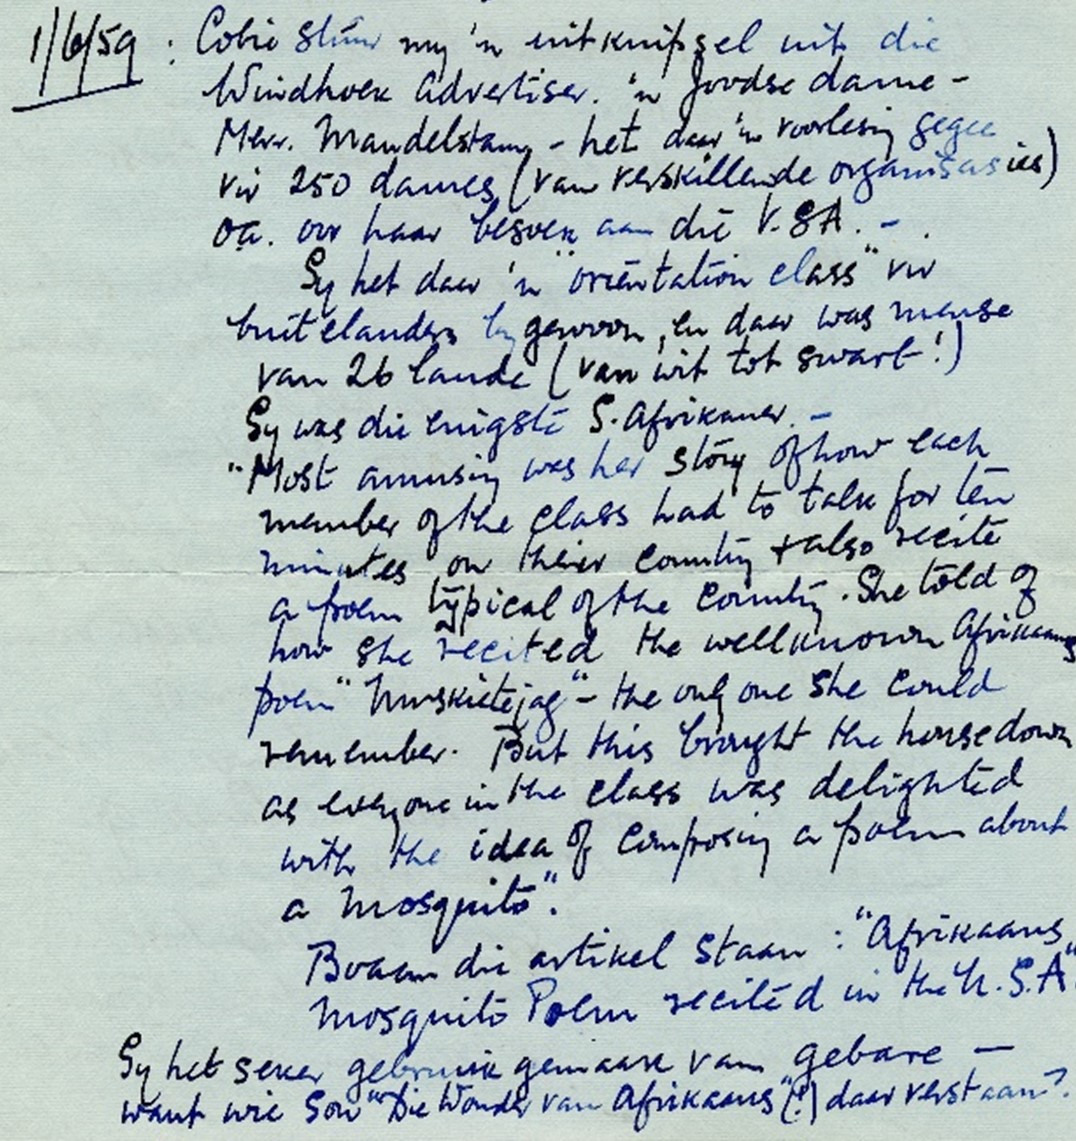 1/6/59 : Cobie stuur my 'n uitknipsel uit die
Windhoek Advertiser. 'n Joodse dame -
Mevr. Mandelstam - het daar 'n voorlesing gegee
vir 250 dames (van verskillende organisasies)
oa. oor haar besoek aan die V.S.A. -
Sy het daar 'n "orientation class" vir
buitelanders bygewoon, en daar was mense
van 26 lande (van wit tot swart!)
Sy was die enigste S. Afrikaner. -
"Most amusing was her story of how each
member of the class had to talk for ten
minutes on their country + also recite
a poem typical of the country. She told of
how she recited the wellknown Afrikaans
poem "Muskietejag" - the only one she could
remember. But this brought the house down
as everyone in the class was delighted
with the idea of composing a poem about
a mosquito".
Boaan die artikel staan : "Afrikaans
Mosquito Poem recited in the U.S.A."
Sy het seker gebruik gemaak van gebare -
want wie sou "Die Wonder van Afrikaans" (!) daar verstaan?